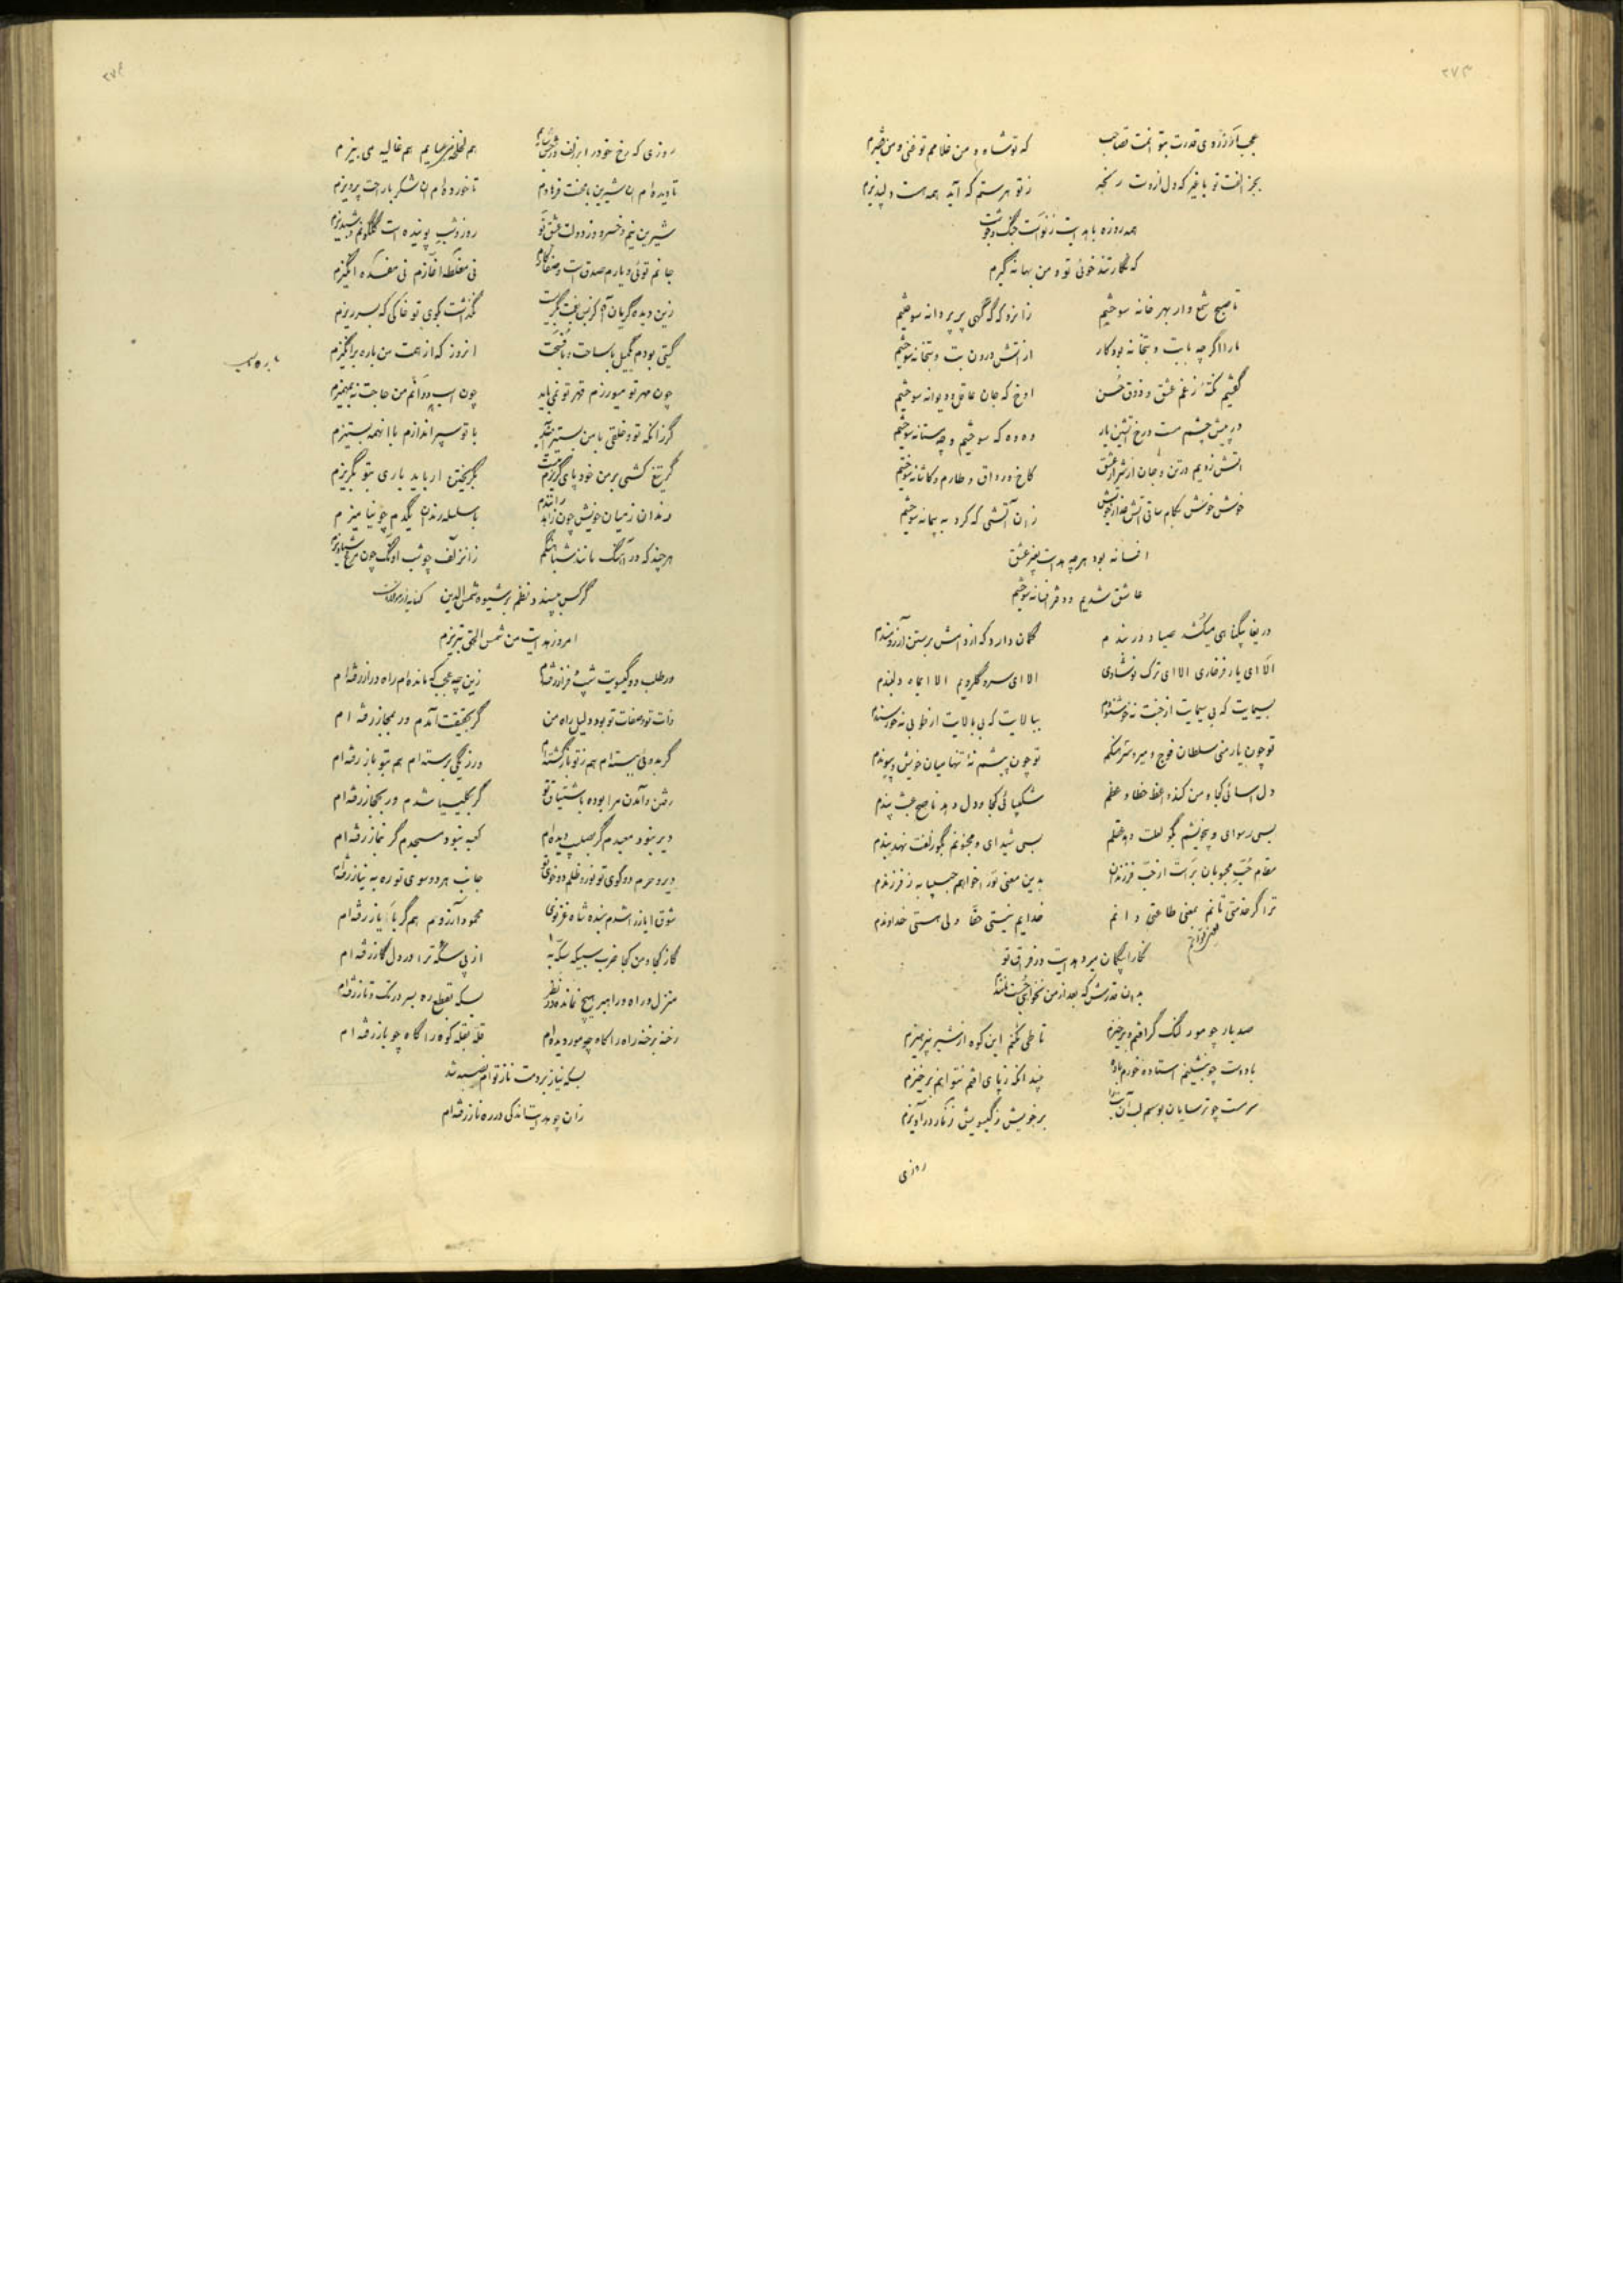 ۳۷۳
عجب از آرزوی قدرت بتو الفت قصاحب
که تو شاه و من غلامم تو غنی و من فقیرم
بجز الفت تو با غیر که دل ازوت رنجد
ز تو هر ستم که آید همه هست دلپذیرم
همه روزه با هدایت ز تو است جنگ و
که نگار تند خوئی تو و من بهانه گیرم
تا صبح شمع وار بهر خانه سوختیم
زانرو که گه گهی پر پروانه سوختیم
ما را اگر چه با بت و بتخانه بود کار
از آتش درون بت و بتخانه سوختیم
گفتیم نکته ز غم عشق و ذوق حسن
اوخ که جان عاقل و دیوانه سوختیم
در پیش چشم مست و رخ آتشین یار
وه وه که سوختیم و چه مستانه سوختیم
آتش زدیم در تن و جان از شرار عشق
کاخ و رواق و طارم و کاشانه سوختیم
خوش خوش بکام ساقی آتش
زان آتشی که کرد به پیمانه سوختیم
افسانه بود هرچه هدایت بغیر عشق
عاشق شدیم و دفتر افسانه سوختیم
دریغا بیگناهی میکشد صیاد در بندم
گمان دارد که از دامش برستن آرزومندم
الا ای یار فرخاری الا ای ترک نوشادی
الا ای سرو گلرویم الا ای ماه دلبندم
بسیمایت که بی سیمایت از جنت نه خوشنودم
ببالایت که بی بالایت از طوبی نه خورسندم
تو چون یار منی سلطان فوج و میر و سرهنگم
تو چون پیشم نهٔ تنها میان خویش و پیوندم
دل آسائی کجا و من کند واعظ خطا وعظم
شکیبائی کجا و دل دهد ناصح عبث پندم
بسی رسوای و بیخویشم بگو لعلت دهد عقلم
بسی شیدای و مجنونم بگو زلفت نهد بندم
مقام حب محبوبان براست از حب فرزندان
بدین معنی ترا خواهم حسیبا به ز فرزندم
ترا گر خدمتی تانم بمعنی طاعتی دانم
خدایم نیستی حقا ولی هستی خداوندم
یعنی توانم
نگارا بیگمان میرد هدایت در فراق تو
بدان قدرش که بعد از من نخواهی جست مانندم
صد بار چو مور لنگ گر افتم و برخیزم
تا طی نکنم این کوه از شیر نپرهیزم
با دوست چو بنشینم استاده خورم باده
چندانکه ز پای افتم نتوانم برخیزم
سرمست چو ترسایان بوسم لب آن
بر خویش ز گیسویش زنار در آویزم
روزی
۳۷۴
روزی که رخ خود را بزلف
هم لخلخه میسایم هم غالیه می بیزم
تا دیده ام آن شیرین با محنت فرهادم
تا خورده ام آن شکر با راحت پرویزم
شیرین نیم و خسرو وز دولت عشق تو
روز و شب پوینده است گلگونم و شبدیزم
جانم توئی و یارم صدق است
نی مغلطه آغازم نی مفسده انگیزم
زین دیده گریان
نگذشت بکوی تو خاکی که بسر ریزم
گیتی بودم یکمیل با ساحت
انروز که از همت من باره برانگیزم
باره اسب
چون مهر تو میورزم قهر تو نمی باید
چون اسب دوانم من حاجت نه بمهمیزم
گر زانکه تو و خلقی با من بستیز آید
با تو سپر اندازم با آنهمه بستیزم
گر تیغ کشی بر من خود پای گریزم
بگریختن ار باید باری بتو بگریزم
رندان ز میان خویش چون زاهد رانندم
با سلسله رندان یکدم چو نیامیزم
هرچند که در آهنگ مانند شباهنگم
زانزلف چو شب آونگ چون مرغ شباویزم
گر کس نپسندد نظم بر شیوه شمس الدین
امروز هدایت من شمس الحق تبریزم
در طلب دو گیسویت شیب و فراز رفته ام
زین چه عجب که مانده ام راه دراز رفته ام
ذات تو و صفات تو بود دلیل راه من
گر بحقیقت آمدم ور بمجاز رفته ام
گر بدوئی ببسته ام هم ز تو بازگشته ام
ور ز یکی برسته ام هم بتو باز رفته ام
رفتن و آمدن مرا بوده باشتیاق تو
گر بکلیسیا شدم ور بحجاز رفته ام
دیر بنو و معبدم گر بصلیب دیده ام
کعبه نبود مسجدم گر بنماز رفته ام
دیر و حرم دو کوی تو نور و ظلم دو خوی تو
جانب هر دو سوی تو ره به نیاز رفته ام
شوق ایاز را شدم بنده شاه غزنوی
محمود آرزویم هم گر بایاز رفته ام
گاز کجا و من کجا ضرب سبیکه سکه به
از پی سکه ترا در دل گاز رفته ام
منزل و راه و راهبر هیچ نمانده در نظر
بسکه بقطع ره بسر در تک و تاز رفته ام
رخنه برخنه راه را گاه چو مور دیده ام
قله بقله کوه را گاه چو باز رفته ام
بسکه نیاز بردمت ناز توام نصیبه شد
زان چو هدایت اندکی در ره ناز رفته ام